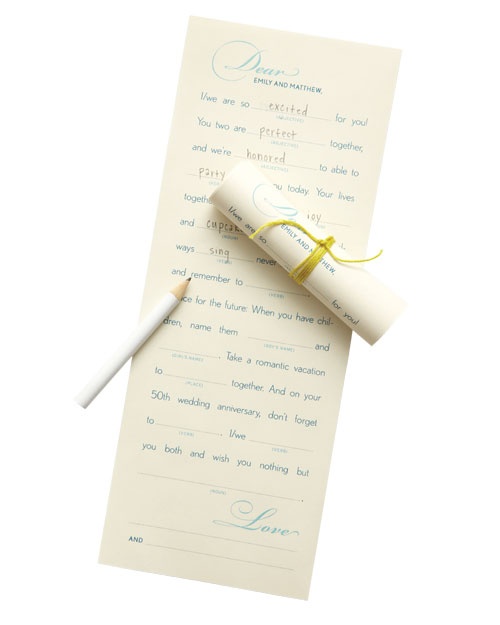 Dear
EMILY AND MATTHEW,
I/we are so excited for you!
(ADJECTIVE)
You two are perfect together,
(ADJECTIVE)
and we're honored to able to
(ADJECTIVE)
party you today. Your lives
together joy
and
ways sing never
(VERB)
and remember to
(VERB)
for the future: When you have chil-
dren, name them and
(BOY'S NAME)
(GIRL'S NAME)
. Take a romantic vacation
to together. And on your
(PLACE)
50th wedding anniversary, don't forget
to . I/we
(VERB) (VERB)
you both and wish you nothing but
(NOUN)
Love
AND
I/we are so
EMILY AND MATTHEW,
for you!